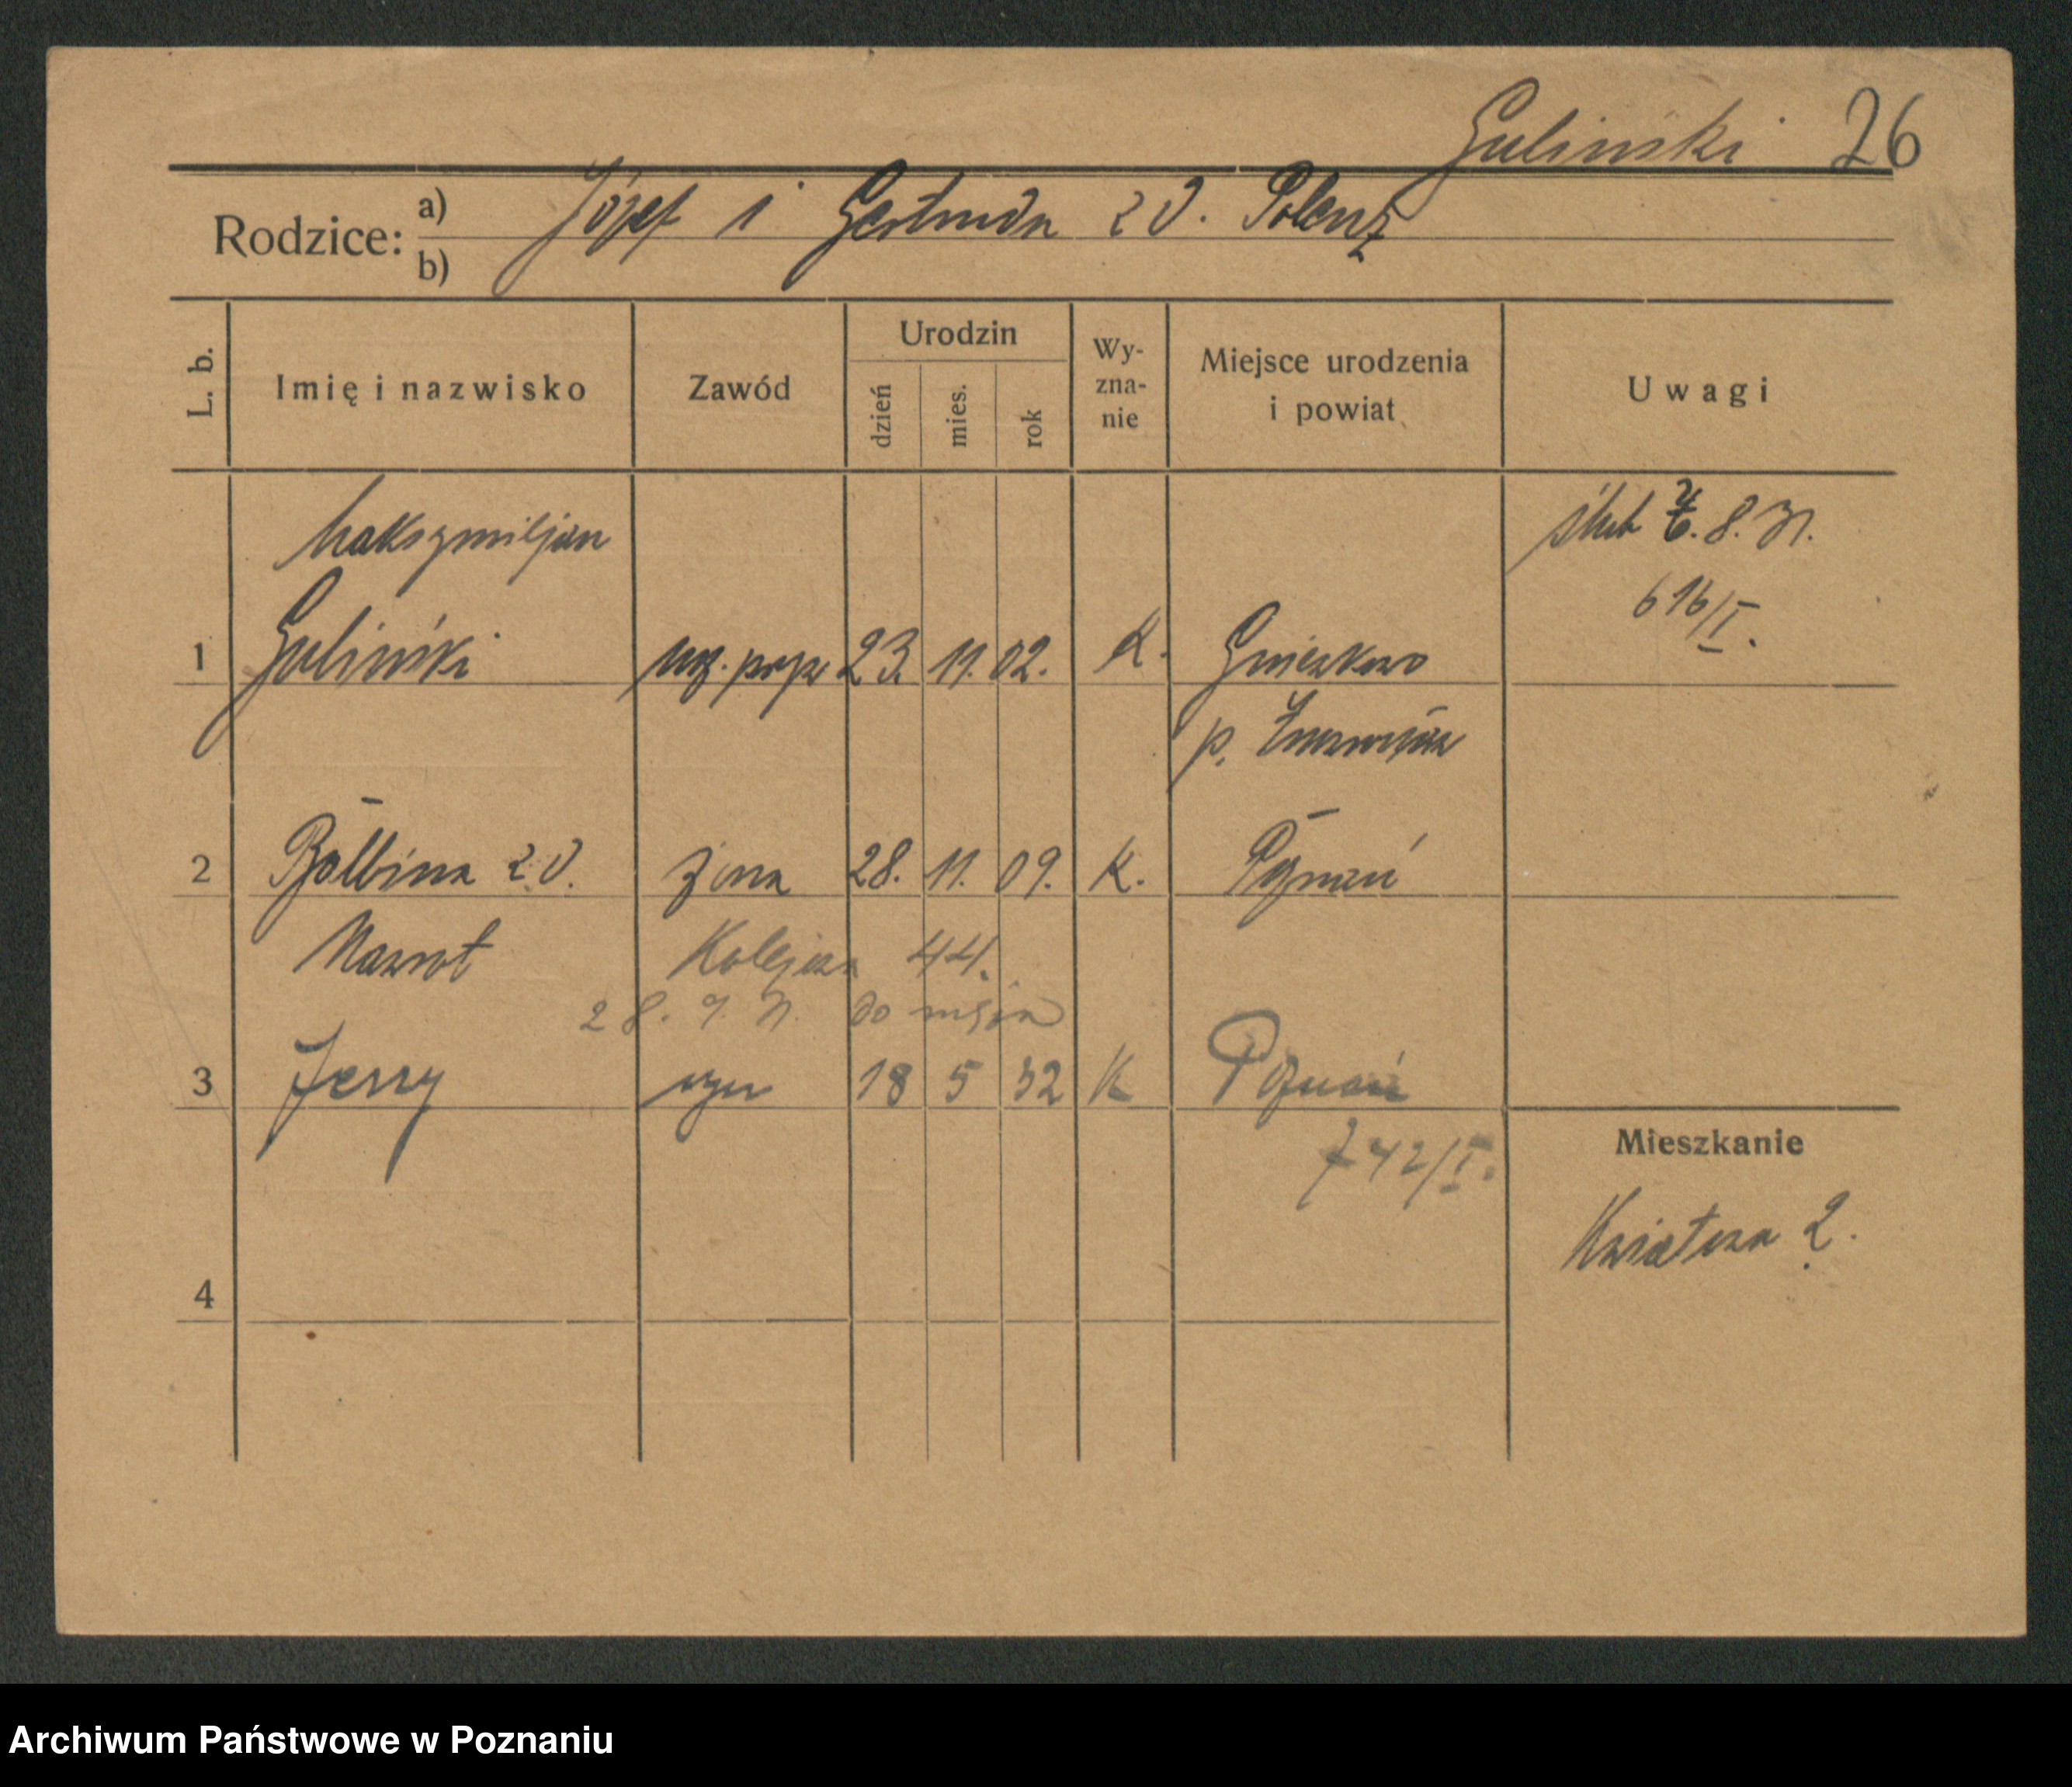 Guliński 26
Rodzice: a) Józef i Gertruda z d. Polenz
b)
L. b. Imię i nazwisko Zawód Urodzin dzień mies. rok Wyznanie Miejsce urodzenia i powiat Uwagi
Maksymiljan ślub 8. 31.
616/I.
1 Guliński 23. 11. 02. K. Gniewkowo
p.
2 Balbina z d. żona 28. 11. 09. K. Poznań
Nawrot Kolejowa 44.
28. 9. 31. do męża
3 Jerzy syn 18 5 32 K Poznań
742/I.
Mieszkanie
Kwiatowa 2.
4
Archiwum Państwowe w Poznaniu